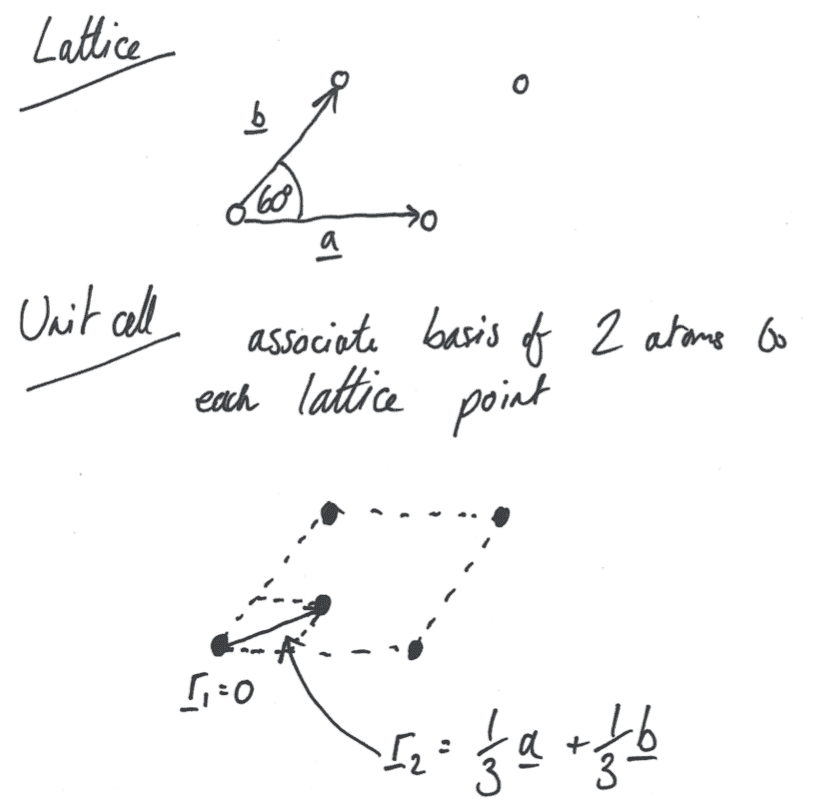 Lattice
b
60°
a
Unit cell
associate basis of 2 atoms to
each lattice point
r₁ = 0
r₂ = 1/3 a + 1/3 b